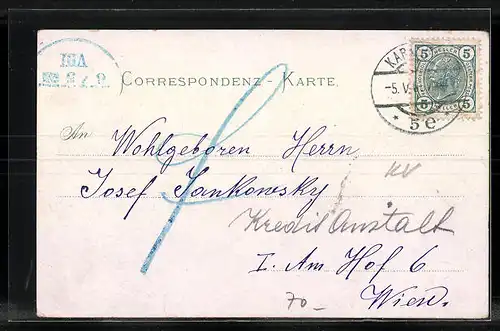 CORRESPONDENZ - KARTE.
KAR
5 HELLER 5
-5. V.
5 5
* 5e
An
Wohlgeboren Herrn
Josef Jankowsky
KV
Kreditanstalt
I. Am Hof 6
70-
Wien.